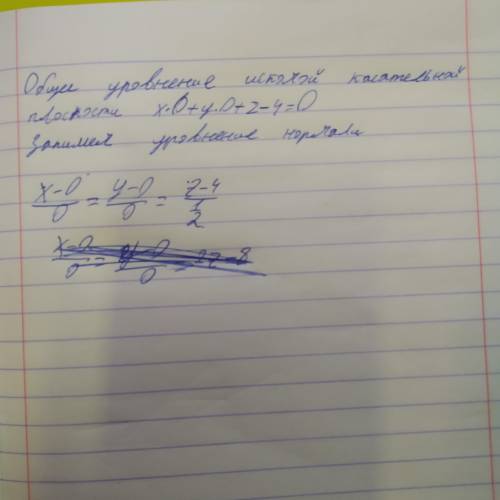 Общее уровнение искомой касательной
плоскости x·0+y·0+z-4=0
Запишем уровнение нормали
x-0/0 = y-0/0 = z-4/(1/2)
x-0/0 = y-0/0 = 2z-8